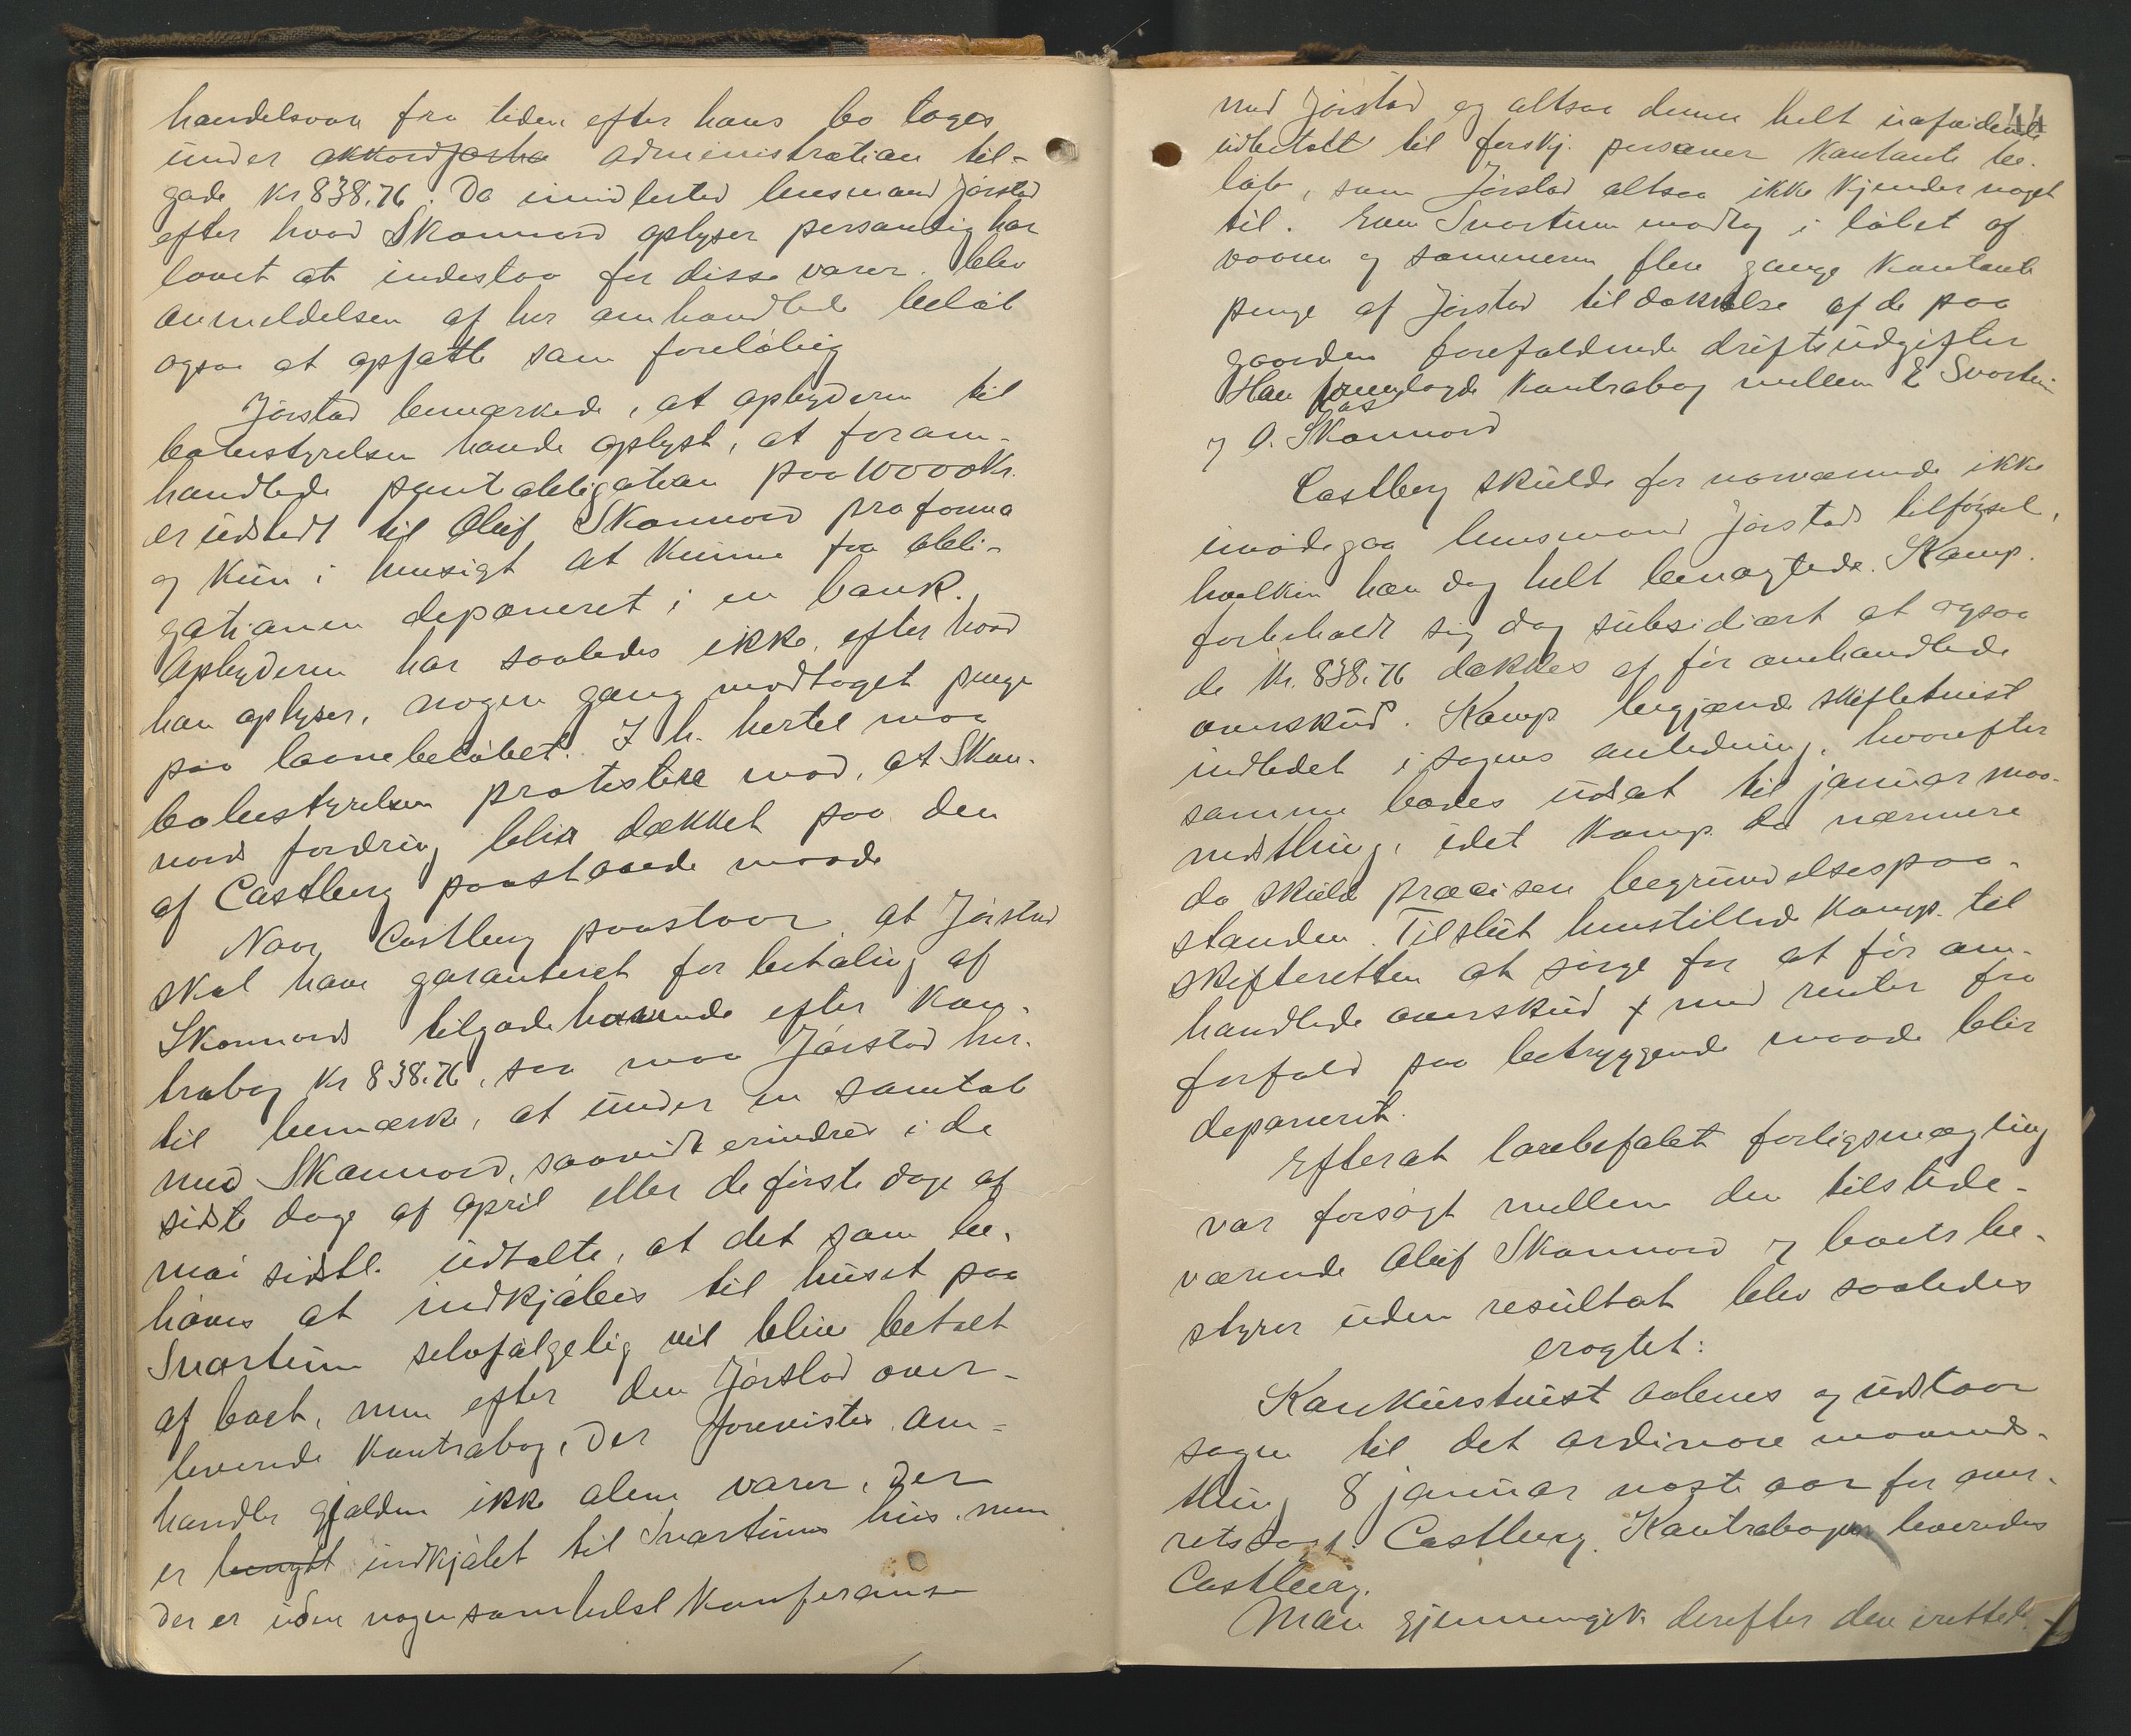 handelsvare fra tiden efter hans bo toges
under akkordforha administration til-
gode Kr. 838.76. Da imidlertid lensmand Jórstad
efter hvad Skonnord oplyser personlig har
lovet at indestaa for disse varer. blev
anmeldelsen af her omhandlede belób
ogsaa at opfatte som forelóbig
Jórstad bemærkede, at opbyderen til
bobestyrelsen havde oplyst, at foram-
handlede pantobligation paa 10000 Kr.
er udstedt til Oluf Skonnord pro forma
og kun i hensigt at kunne faa obli-
gationen deponeret i en bank.
Opbyderen har saaledes ikke, efter hvad
han oplyser, nogen gang modtaget penge
paa laanebelóbet. I h. hertil maa
bobestyrelsen protistere mod, at Skon-
nords fordring blir dækket paa den
af Castberg paastaaede maade
Naar Castberg paastaar at Jórstad
skal have garanteret for betaling af
Skonnords tilgodehavende efter kon-
trabog Kr 838.76, saa maa Jórstad her-
til bemærke, at under en samtale
med Skonnord, saavidt erindres i de
sidste dage af april eller de fórste dage af
mai sidstl. udtalte, at det som be-
hóves at indkjóbes til huset paa
Svartum selvfólgelig vil blive betalt
af boet, men efter den Jórstad over-
leverede kontrabog, der forevistes om-
handler gjælden ikke alene varer, der
er benyttt indkjóbt til Svartums hus. men
der er uden nogensomhelst konferanse
44
med Jórstad og altsaa denne helt uafvidende
udbetalt til forskj. personer kontante be-
lób, som Jórstad altsaa ikke kjender noget
til. Even Svartum modtog i lóbet af
vaaren og sommeren flere gange kontante
penge af Jórstad til dækkelse af de paa
gaarden forefaldende driftsudgifter
Han fremlagde kontrabog mellem E Svartum
og O. Skonnord
Castberg skulde for nærværende ikke
imódegaa lensmand Jórstads tilfórsel,
hvilken han dog helt benægtede. Komp.
forbeholdt sig dog subsidiært at ogsaa
de Kr. 838.76 dækkes af fór omhandlede
overskud. Komp begjærede skiftetvist
indledet i sagens anledning, hvorefter
samme bades udsat til januar maa-
nedsthing, idet komp. da nærmere
da skulde præcisere begrundelsespaa-
standen. Tilslut henstillede komp. til
skifteretten at sórge for at fór om-
handlede overskud med renter fra
forfald paa betryggende maade blir
deponerit.
Efterat lovbefalet forligsmægling
var forsógt mellem den tilstede-
værende Oluf Skonnord og boets be-
styrer uden resultat blev saaledes
eragtet:
Konkurstvist aabnes og udstaar
sagen til det ordinære maaneds-
thing 8 januar næste aar for over-
retssagf. Castberg. Kontrabogen leveredes
Castberg.
Man gjennemgik derefter den irettel-